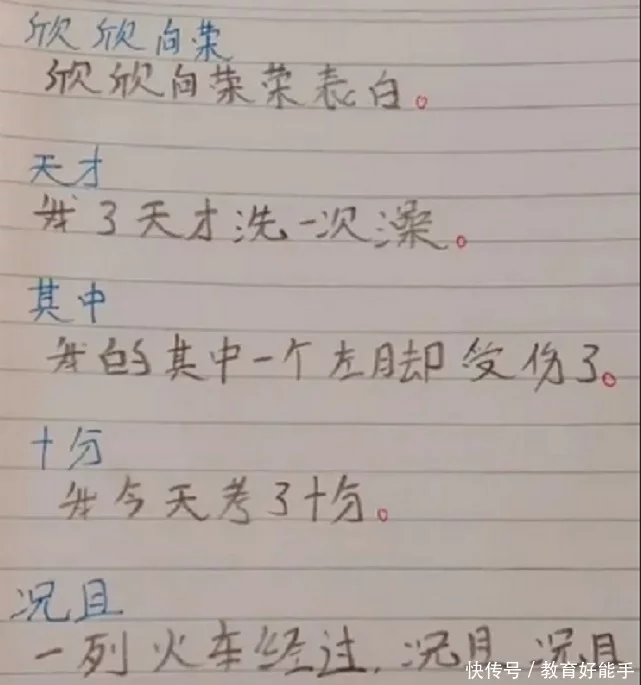 欣欣向荣
欣欣向荣荣表白。
天才
我3天才洗一次澡。
其中
我的其中一个左脚受伤了。
十分
我今天考了十分。
况且
一列火车经过,况且 况且
快传号/教育好能手